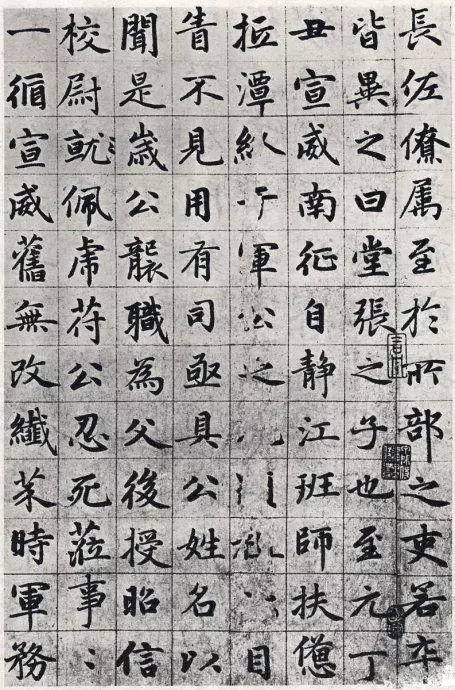 長佐僚属至於所部之吏若卒
皆異之曰堂張之子也至元丁
丑宣威南征自静江班師扶憊
抵潭于軍公之目
眚不見用有司亟具公姓名以
聞是歳公襲職為父後授昭信
校尉就佩虎符公忍死蒞事〻
一循宣威舊無改纖芥時軍務